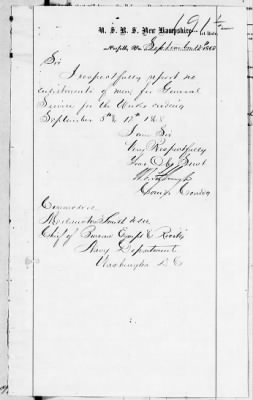 191 1/2
U. S. R. S. New Hampshire
Norfolk, Va. September 12th 1868
Sir
I respectfully report no
enlistments of men for General
Service for the weeks ending
September 5th & 12th 1868
I am Sir
Very Respectfully
Your Obt Servt
Commodore
Melancton Smith U.S.N.
Chief of Bureau Equipt & Recrtg
Navy Department
Washington D C